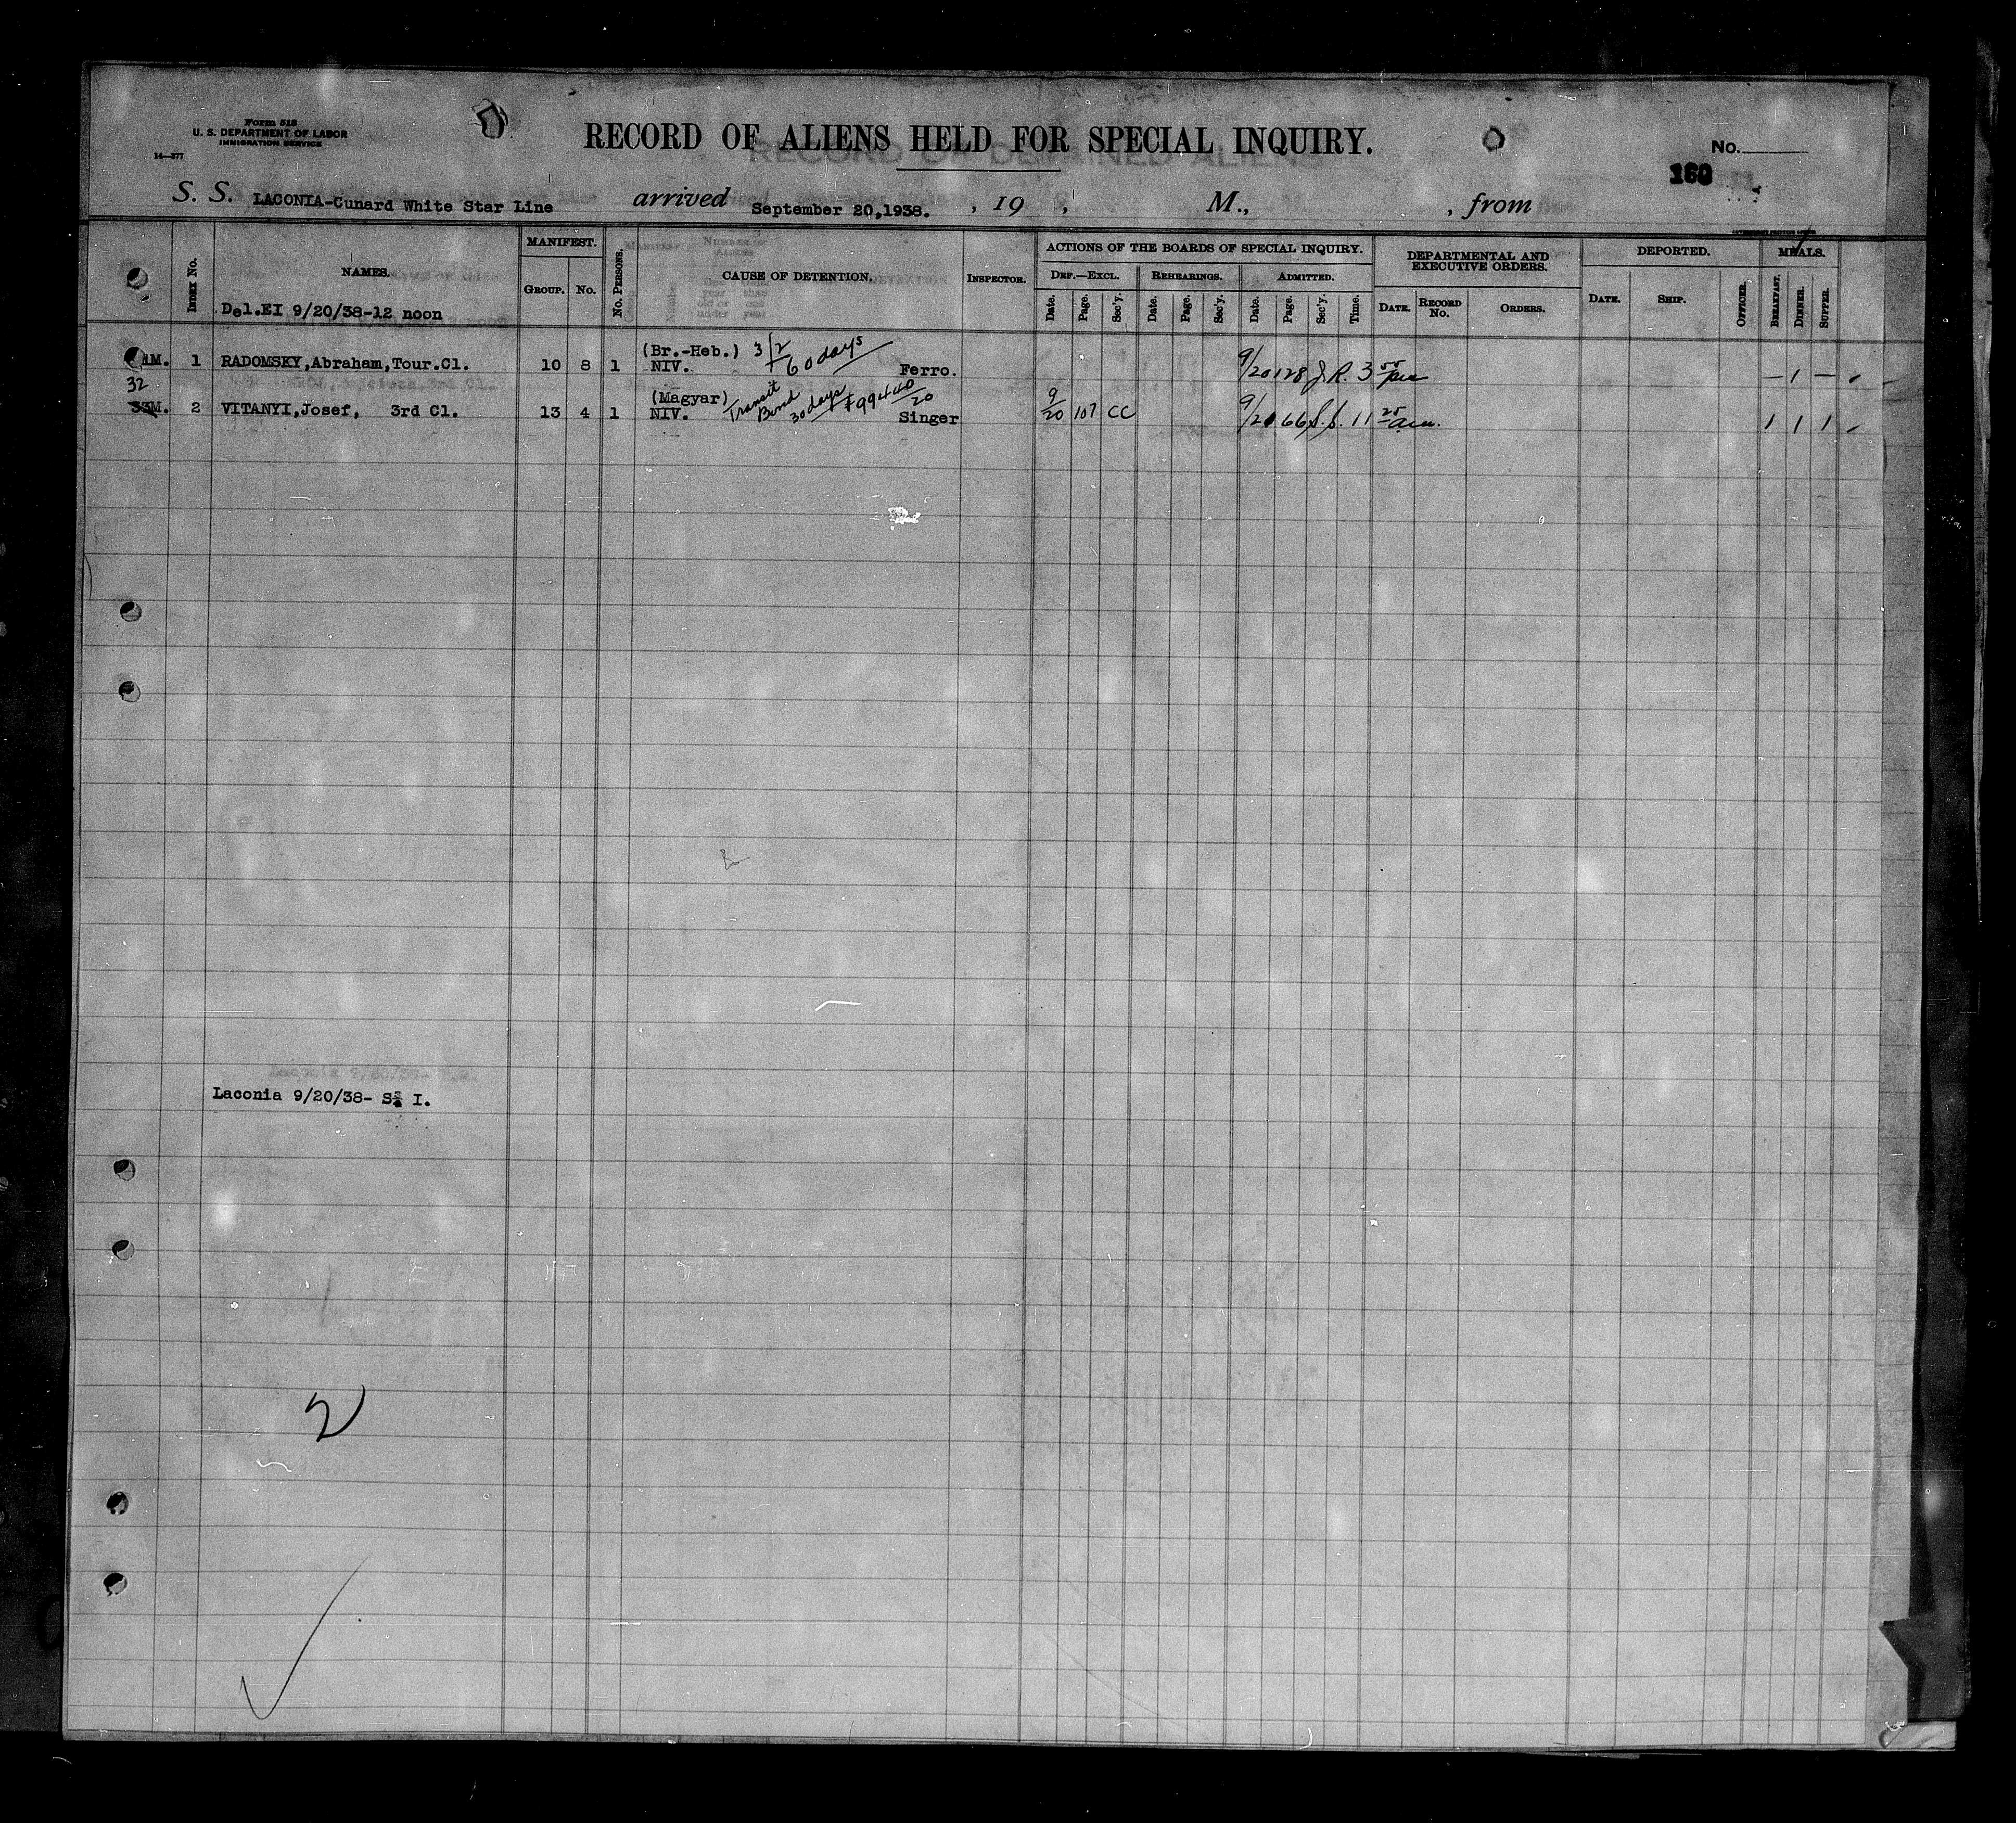 Form 518
U. S. DEPARTMENT OF LABOR
IMMIGRATION SERVICE
14—377
RECORD OF ALIENS HELD FOR SPECIAL INQUIRY.
No.
160
S. S. LACONIA-Cunard White Star Line arrived September 20,1938. , 19 , M., , from
INDEX No. NAMES. MANIFEST. GROUP. No. No. PERSONS. CAUSE OF DETENTION. INSPECTOR. ACTIONS OF THE BOARDS OF SPECIAL INQUIRY. DEPARTMENTAL AND EXECUTIVE ORDERS. DEPORTED. MEALS.
DEF.—EXCL. REHEARINGS. ADMITTED.
Date. Page. Sec'y. Date. Page. Sec'y. Date. Page. Sec'y. Time. DATE. RECORD No. ORDERS. DATE. SHIP. OFFICER. BREAKFAST. DINNER. SUPPER.
Del.EI 9/20/38-12 noon
(Br.-Heb.) 3/2
M. 1 RADOMSKY,Abraham,Tour.Cl. 10 8 1 NIV. 60 days Ferro. 9/20 128 J.R. 3 50 pm — 1 —
32 (Magyar) Transit
33M. 2 VITANYI,Josef, 3rd Cl. 13 4 1 NIV. Bond 30 days Singer 9/20 107 CC 9/21 66 S.S. 11 25 am. 1 1 1
Laconia 9/20/38- S I.
2